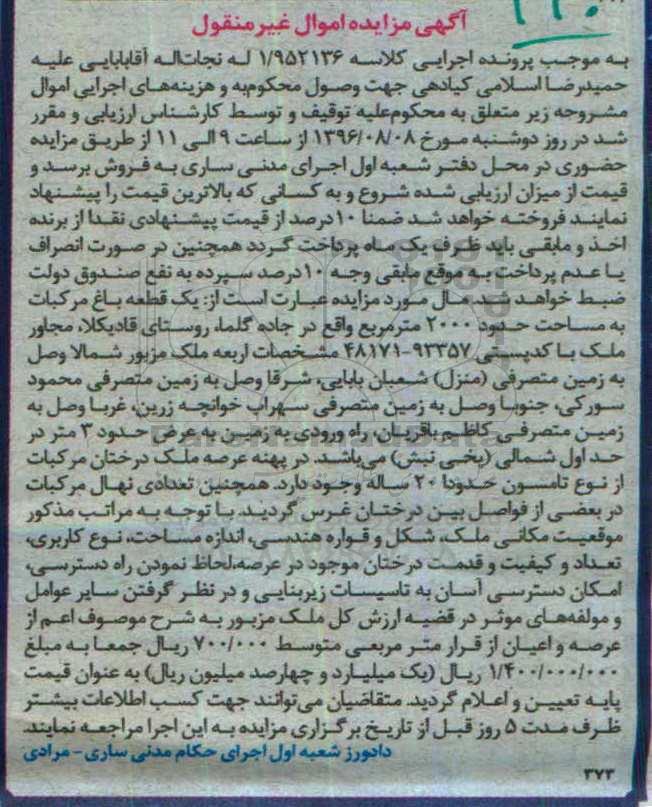 ۲۲۰
آگهی مزایده اموال غیرمنقول
به موجب پرونده اجرایی کلاسه ۱/۹۵۲۱۳۶ له نجات‌اله آقابابایی علیه
حمیدرضا اسلامی کیادهی جهت وصول محکوم‌به و هزینه‌های اجرایی اموال
مشروحه زیر متعلق به محکوم‌علیه توقیف و توسط کارشناس ارزیابی و مقرر
شد در روز دوشنبه مورخ ۱۳۹۶/۰۸/۰۸ از ساعت ۹ الی ۱۱ از طریق مزایده
حضوری در محل دفتر شعبه اول اجرای مدنی ساری به فروش برسد و
قیمت از میزان ارزیابی شده شروع و به کسانی که بالاترین قیمت را پیشنهاد
نمایند فروخته خواهد شد ضمنا ۱۰درصد از قیمت پیشنهادی نقدا از برنده
اخذ و مابقی باید ظرف یک ماه پرداخت گردد همچنین در صورت انصراف
یا عدم پرداخت به موقع مابقی وجه ۱۰درصد سپرده به نفع صندوق دولت
ضبط خواهد شد. مال مورد مزایده عبارت است از: یک قطعه باغ مرکبات
به مساحت حدود ۲۰۰۰ مترمربع واقع در جاده گلما، روستای قادیکلا، مجاور
ملک با کدپستی ۹۳۳۵۷-۴۸۱۷۱ مشخصات اربعه ملک مزبور شمالا وصل
به زمین متصرفی (منزل) شعبان بابایی، شرقا وصل به زمین متصرفی محمود
سورکی، جنوبا وصل به زمین متصرفی سهراب خوانچه زرین، غربا وصل به
زمین متصرفی کاظم باقریان، راه ورودی به زمین به عرض حدود ۳ متر در
حد اول شمالی (پخی نبش) می‌باشد. در پهنه عرصه ملک درختان مرکبات
از نوع تامسون حدودا ۲۰ ساله وجود دارد. همچنین تعدادی نهال مرکبات
در بعضی از فواصل بین درختان غرس گردید. با توجه به مراتب مذکور
موقعیت مکانی ملک، شکل و قواره هندسی، اندازه مساحت، نوع کاربری،
تعداد و کیفیت و قدمت درختان موجود در عرصه،لحاظ نمودن راه دسترسی،
امکان دسترسی آسان به تاسیسات زیربنایی و در نظر گرفتن سایر عوامل
و مولفه‌های موثر در قضیه ارزش کل ملک مزبور به شرح موصوف اعم از
عرصه و اعیان از قرار متر مربعی متوسط ۷۰۰/۰۰۰ ریال جمعا به مبلغ
۱/۴۰۰/۰۰۰/۰۰۰ ریال (یک میلیارد و چهارصد میلیون ریال) به عنوان قیمت
پایه تعیین و اعلام گردید. متقاضیان می‌توانند جهت کسب اطلاعات بیشتر
ظرف مدت ۵ روز قبل از تاریخ برگزاری مزایده به این اجرا مراجعه نمایند.
دادورز شعبه اول اجرای حکام مدنی ساری - مرادی
۳۷۳